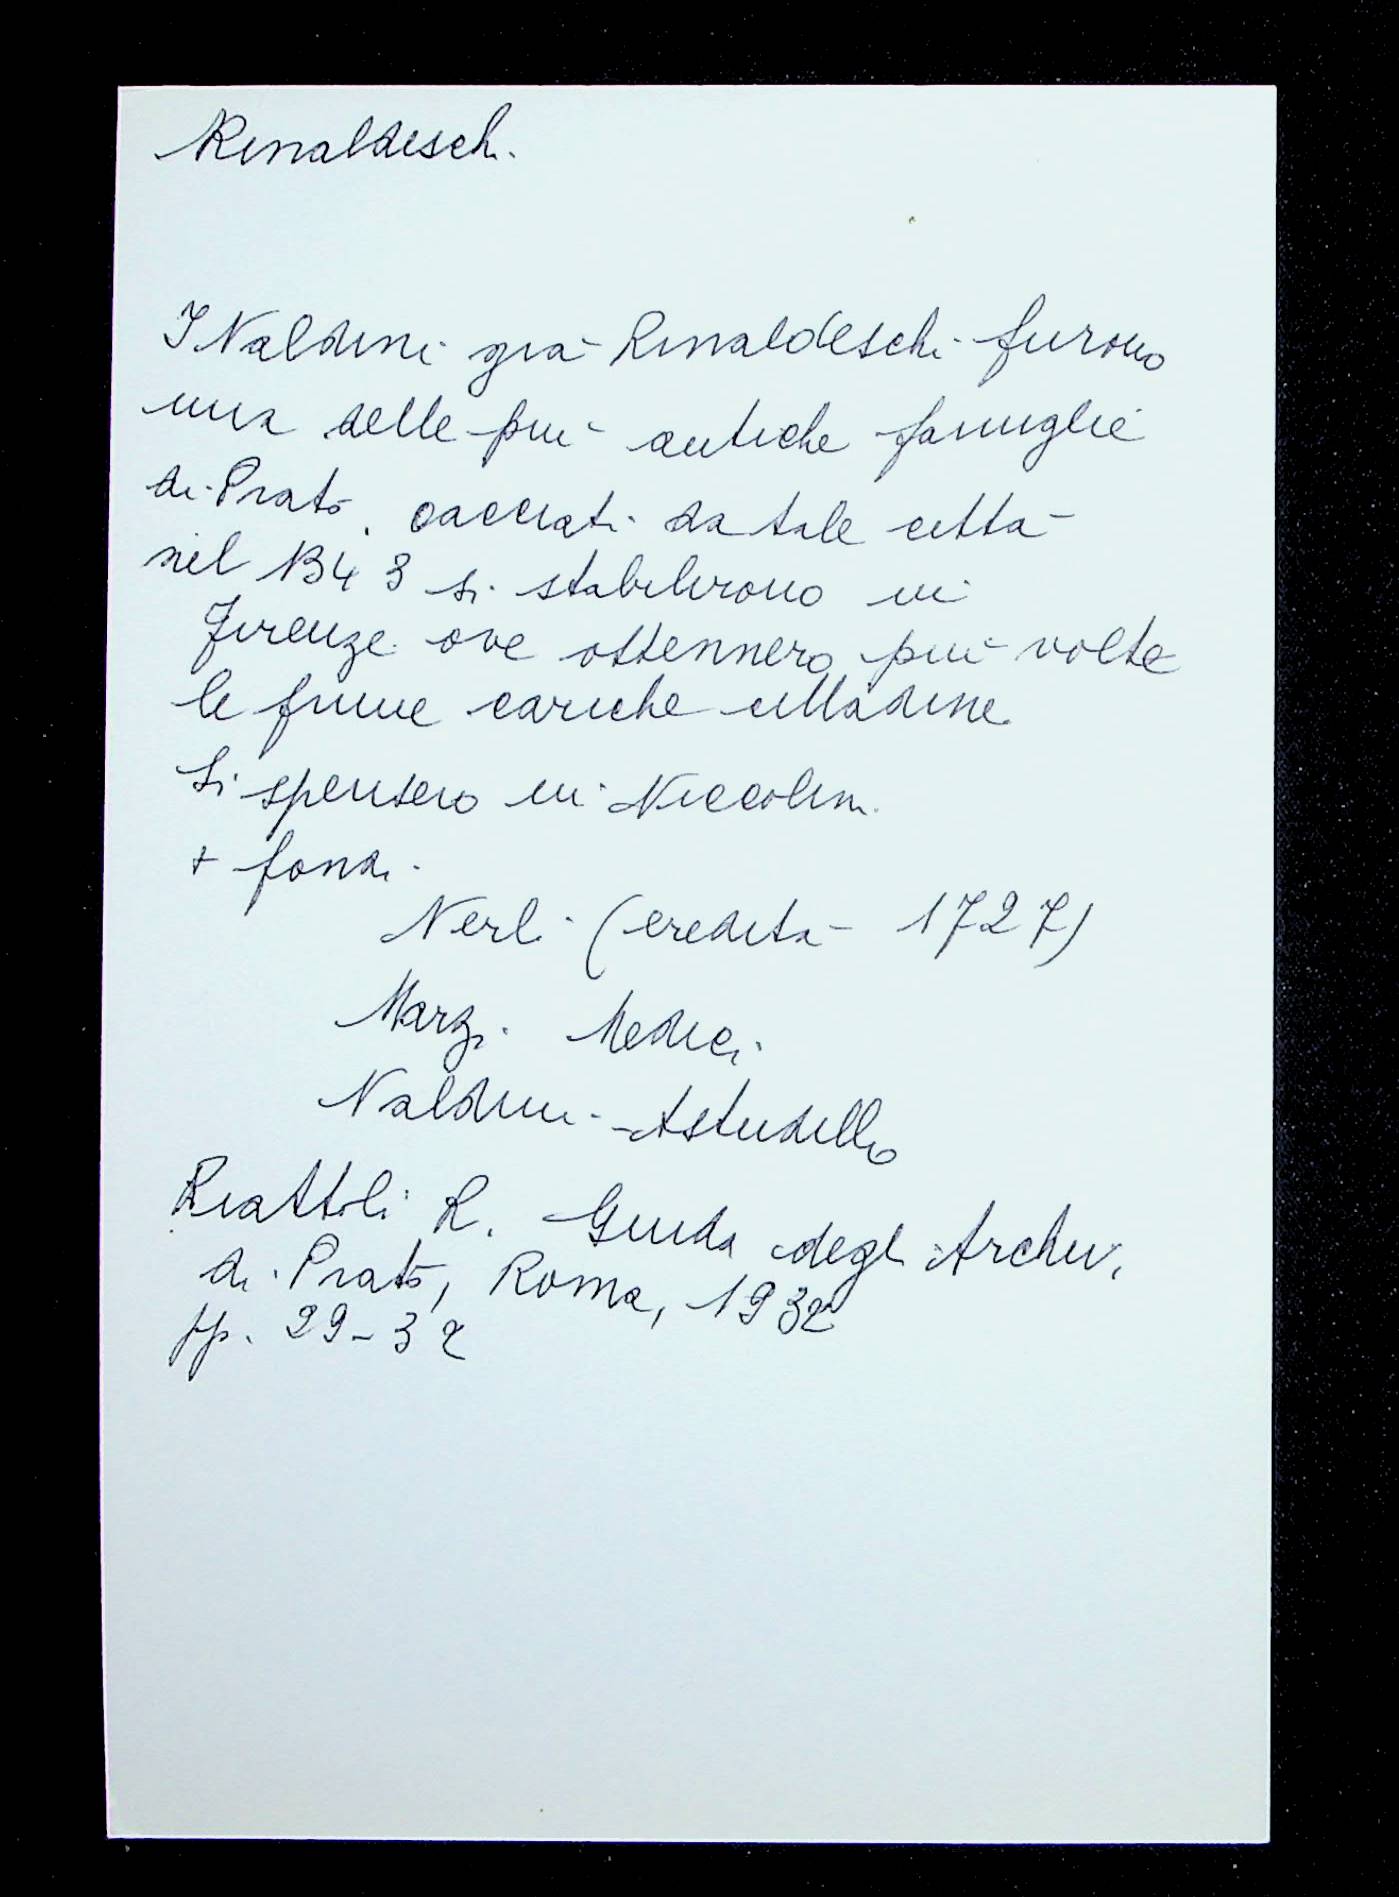 Rinaldeschi
I Naldini già Rinaldeschi furono
una delle più antiche famiglie
di Prato. cacciati da tale città
nel 1343 si stabilirono in
Firenze ove ottennero più volte
le prime cariche cittadine
Si spensero in Niccolini
+ fondi
Nerli (eredità 1727)
Marzi Medici
Naldini Astudillo
Piattoli R. Guida degli Archivi
di Prato, Roma, 1932
pp. 29-32